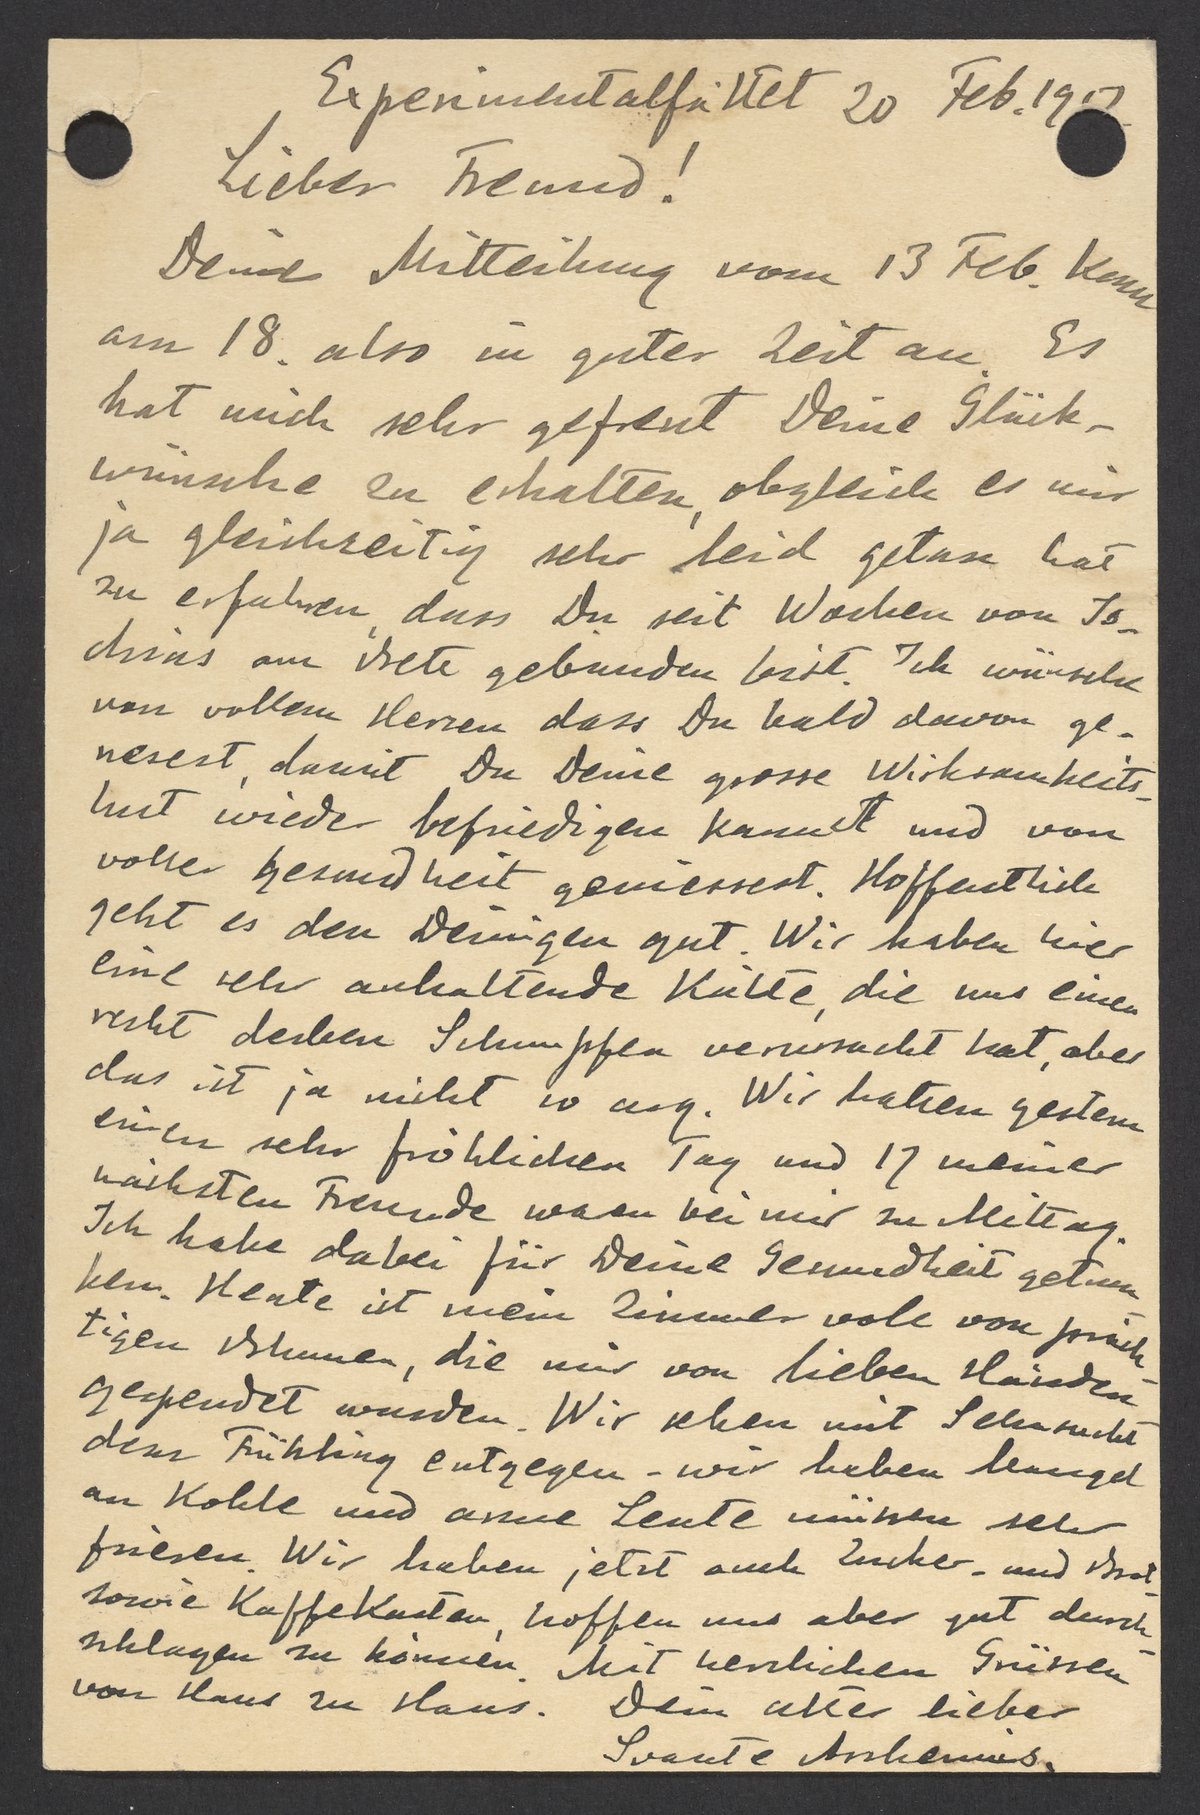 Experimentalfältet 20 Feb. 1917.
Lieber Freund!
Deine Mitteilung vom 13 Feb. kam
am 18. also in guter Zeit an. Es
hat mich sehr gefreut Deine Glück-
wünsche zu erhalten, obgleich es mir
ja gleichzeitig sehr leid getan hat
zu erfahren, dass Du seit Wochen von Is-
chias am Bette gebunden bist. Ich wünsche
von vollem Herzen dass Du bald davon ge-
nesest, damit Du Deine grosse Wirksamkeits-
lust wieder befriedigen kannst und von
voller Gesundheit geniessest. Hoffentlich
geht es den Deinigen gut. Wir haben hier
eine sehr anhaltende Kälte, die uns einen
recht derben Schnupfen verursacht hat, aber
das ist ja nicht so arg. Wir hatten gestern
einen sehr fröhlichen Tag und 17 meiner
nächsten Freunde waren bei mir zu Mittag.
Ich habe dabei für Deine Gesundheit getrun-
ken. Heute ist mein Zimmer voll von präch-
tigen Blumen, die mir von lieben Händen
gespendet wurden. Wir sehen mit Sehnsucht
dem Frühling entgegen - wir haben Mangel
an Kohle und arme Leute müssen sehr
frieren. Wir haben jetzt auch Zucker- und Brot-
sowie Kaffekarten, hoffen uns aber gut durch-
schlagen zu können. Mit herzlichen Grüssen
von Haus zu Haus. Dein alter lieber
Svante Arrhenius.